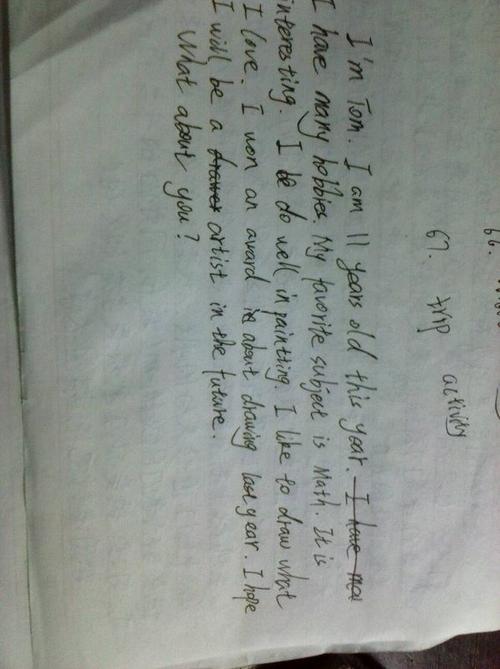 66.
67. trip activity
I'm Tom. I am 11 years old this year. I have
I have many hobbies. My favorite subject is Math. It is
interesting. I do well in painting. I like to draw what
I love. I won an award about drawing last year. I hope
I will be a drawer artist in the future.
What about you?